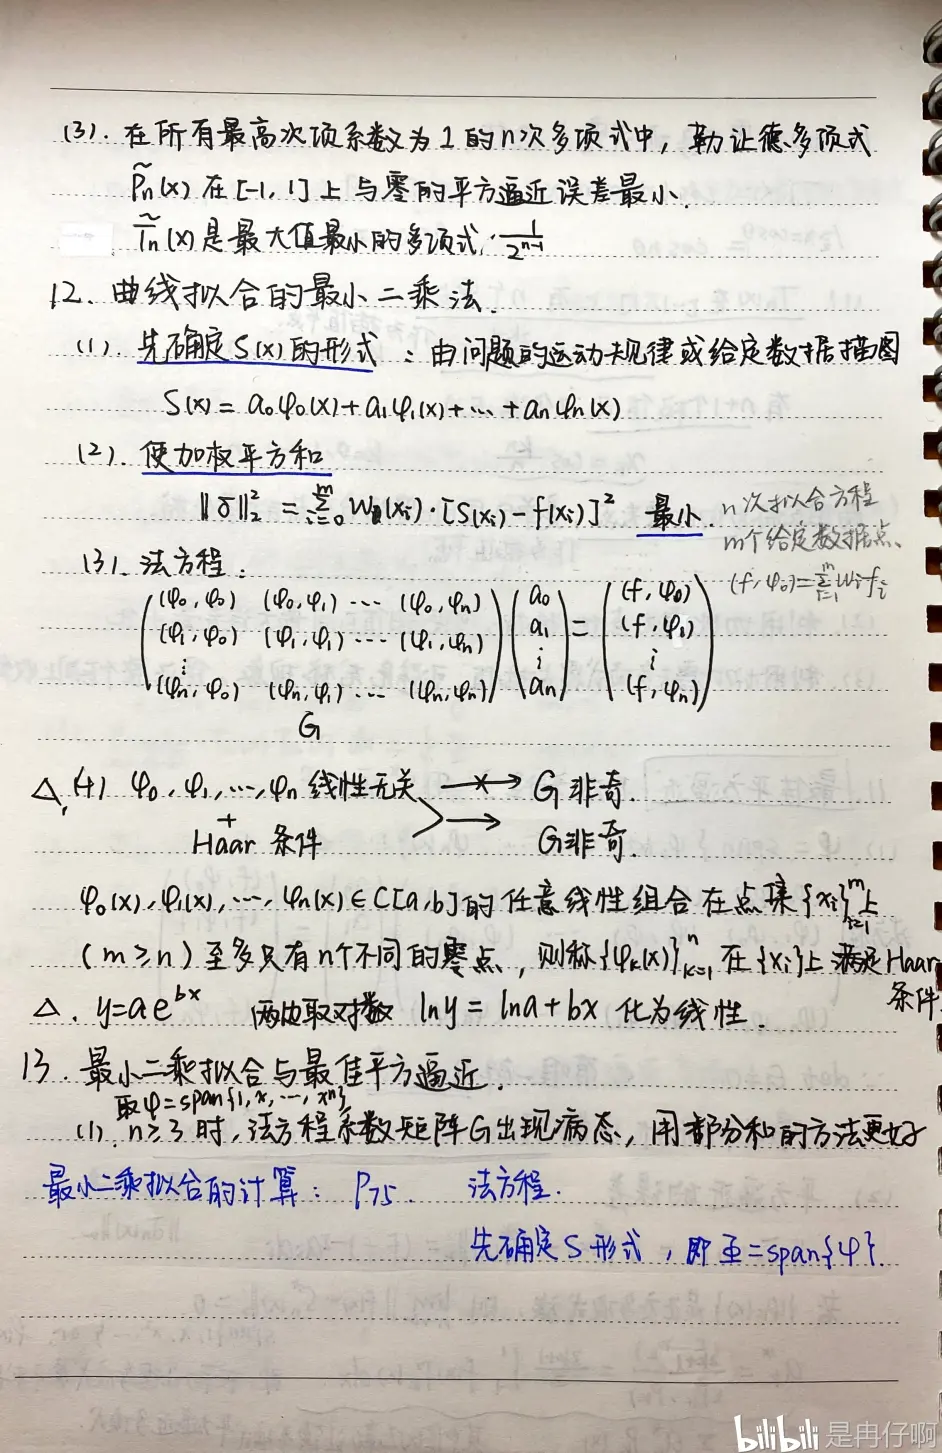 (3). 在所有最高次项系数为1的n次多项式中，勒让德多项式
P̃n(x) 在[-1, 1]上与零的平方逼近误差最小.
T̃n(x)是最大值最小的多项式, 1/2^(n-1)
12. 曲线拟合的最小二乘法.
(1). 先确定S(x)的形式：由问题的运动规律或给定数据描图
S(x) = a0φ0(x)+a1φ1(x)+…+anφn(x)
(2). 使加权平方和
‖δ‖₂² = Σ_{i=0}^{m} W(xi)·[S(xi)-f(xi)]² 最小.
n次拟合方程
m个给定数据点.
(f, φ0)=Σ_{i=1}^{m} wifi
(3). 法方程.
(φ0, φ0) (φ0, φ1) … (φ0, φn) a0 = (f, φ0)
(φ1, φ0) (φ1, φ1) … (φ1, φn) a1 (f, φ1)
⋮ ⋮ ⋮
(φn, φ0) (φn, φ1) … (φn, φn) an (f, φn)
G
△. (1) φ0, φ1, …, φn 线性无关 ─×→ G非奇.
+
Haar 条件 → G非奇.
φ0(x), φ1(x), …, φn(x)∈C[a,b]的任意线性组合在点集{xi}_{i=1}^{m}上
(m≥n) 至多只有n个不同的零点，则称{φk(x)}_{k=1}^{n}在{xi}上满足Haar
条件
△. y=ae^{bx} 两边取对数 ln y = ln a + bx 化为线性.
13. 最小二乘拟合与最佳平方逼近.
取φ=span{1, x, …, x^n}
(1). n≥3时, 法方程系数矩阵G出现病态, 用部分和的方法更好
最小二乘拟合的计算: P75. 法方程.
先确定S形式, 即Φ=span{φ}.
bilibili 是冉仔啊